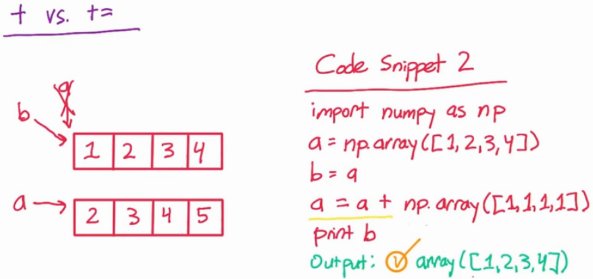 + vs. +=
a
b
1 2 3 4
a
2 3 4 5
Code Snippet 2
import numpy as np
a = np.array([1,2,3,4])
b = a
a = a + np.array([1,1,1,1])
print b
Output: array([1,2,3,4])